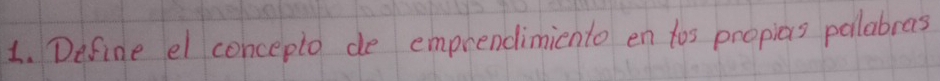 1. Define el concepto de emprendimiento en tus propias palabras